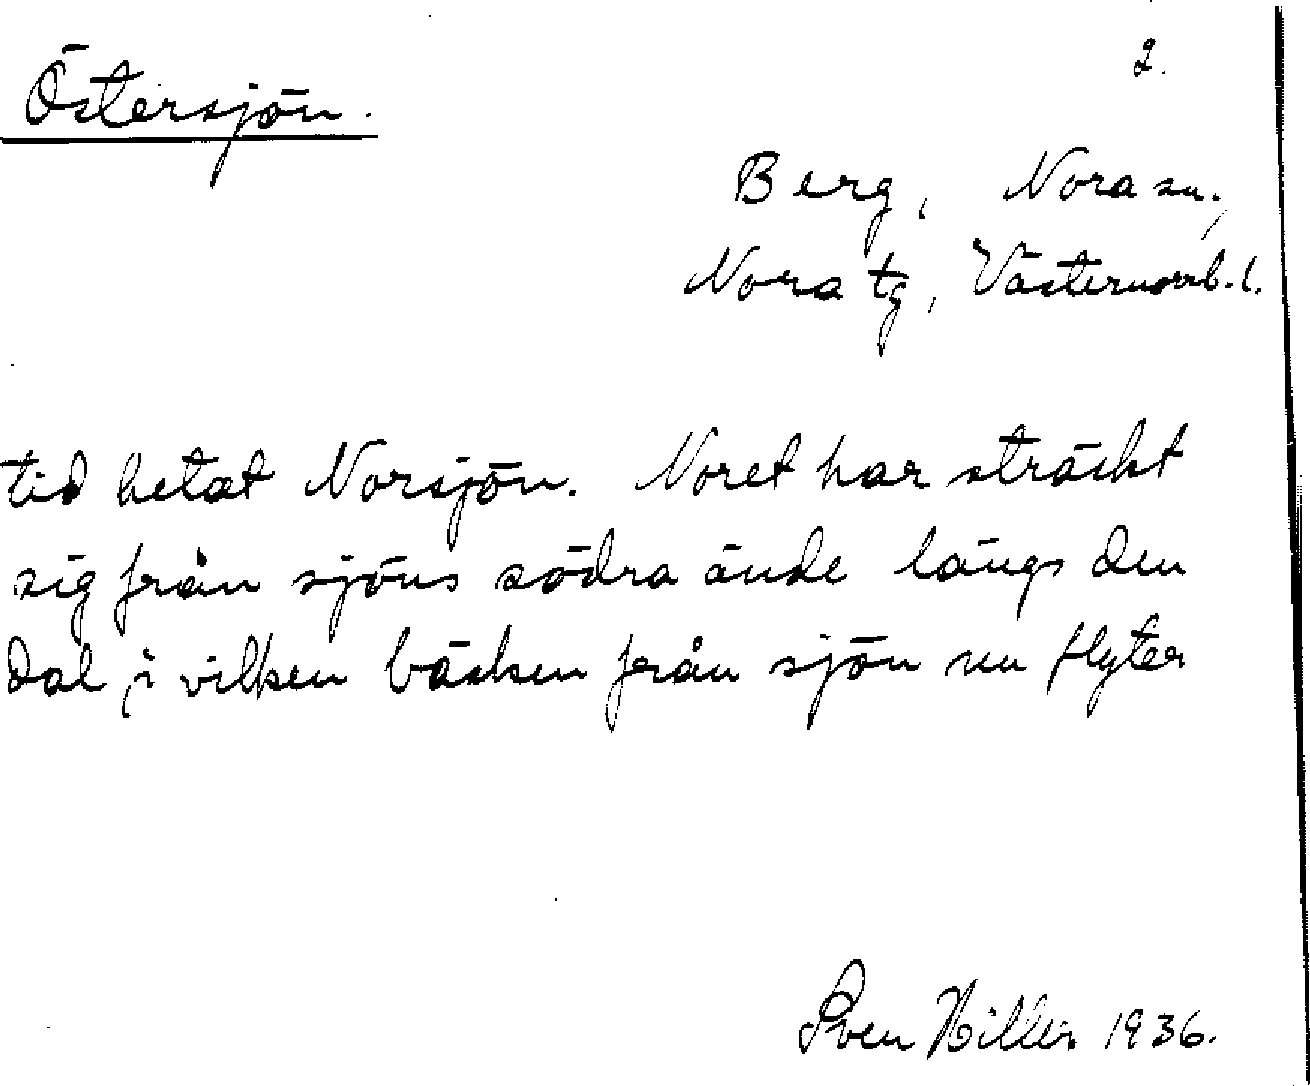 2.
Östersjön.
Berg, Nora sn.,
Nora tg, Västernorrl. l.
tid hetat Norsjön. Noret har sträckt
sig från sjöns södra ände längs den
dal, i vilken bäcken från sjön nu flyter
Sven Hiller 1936.